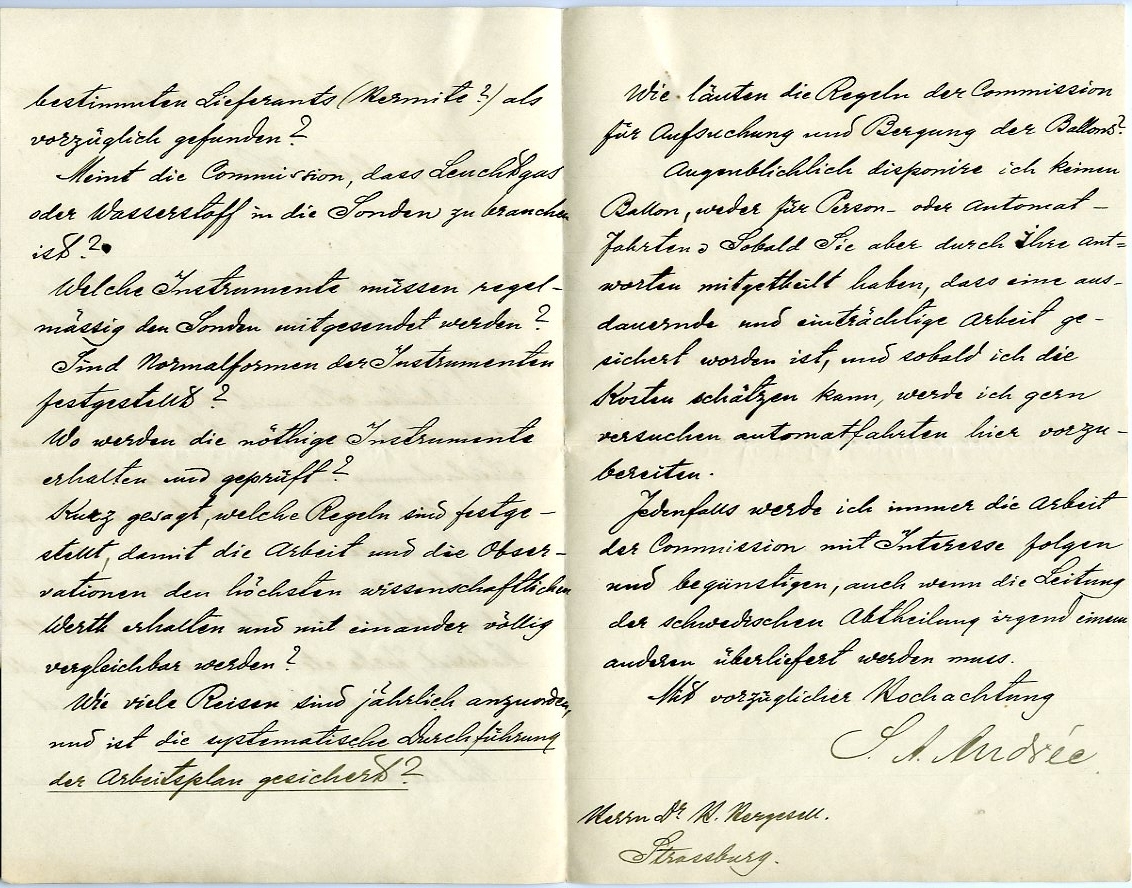 bestimmten Lieferants (Hermite?) als
vorzüglich gefunden?
Meint die Commission, dass Leuchtgas
oder Wasserstoff in die Sonden zu brauchen
ist?
Welche Instrumente müssen regel-
mässig den Sonden mitgesendet werden?
Sind Normalformen der Instrumenten
festgestellt?
Wo werden die nöthige Instrumente
erhalten und geprüft?
Kurz gesagt, welche Regeln sind festge-
stellt, damit die Arbeit und die Obser-
vationen den höchsten wissenschaftlichen
Werth erhalten und mit einander völlig
vergleichbar werden?
Wie viele Reisen sind jährlich anzuorden,
und ist die systematische Durchführung
der Arbeitsplan gesichert?
Wie läuten die Regeln der Commission
für Aufsuchung und Bergung der Ballons?
Augenblichlich disponire ich keinen
Ballon, weder für Person- oder Automat-
fahrten. Sobald Sie aber durch Ihre Ant-
worten mitgetheilt haben, dass eine aus-
dauernde und einträchtige Arbeit ge-
sichert worden ist, und sobald ich die
Kosten schätzen kann, werde ich gern
versuchen Automatfahrten hier vorzu-
bereiten.
Jedenfalls werde ich immer die Arbeit
der Commission mit Interesse folgen
und begünstigen, auch wenn die Leitung
der schwedischen Abtheilung irgend einem
anderen überliefert werden muss.
Mit vorzüglicher Hochachtung
S. A. Andrée.
Herrn Dr H. Hergesell.
Strassburg.